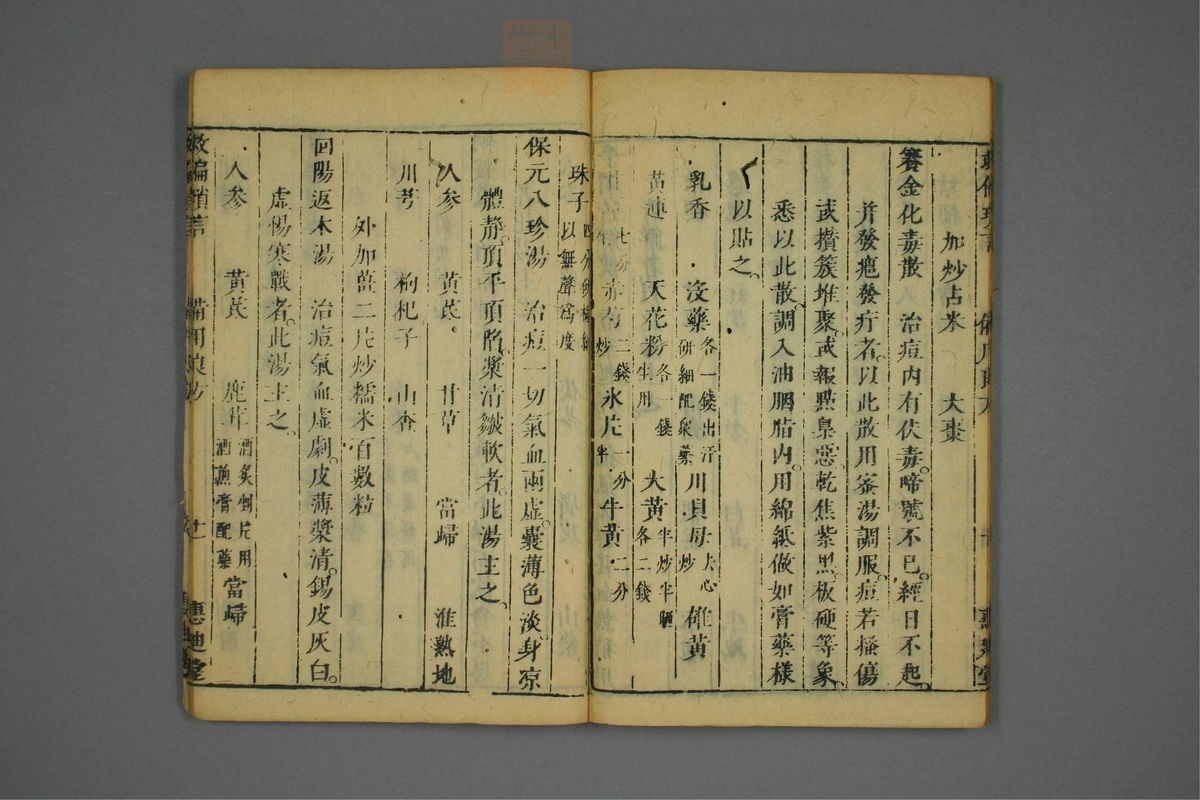 加炒占米　大棗
養金化毒散　治痘内有伏毒。啼號不已。經日不起。
并發瘢發疔者。以此散用蜜湯調服。痘若搔傷
或攢簇堆聚。或報點臭惡。乾焦紫黑。板硬等象。
悉以此散。調入油胭脂内。用綿紙做如膏藥樣
以貼之。
乳香　沒藥各一錢出汗研細配衆藥　川貝母去心炒　雄黃
黃連七分　天花粉各一錢生用　大黃半炒半曬各二錢
赤芍二錢炒　氷片一分半　牛黃二分
珠子四分
以無聲爲度
保元八珍湯　治痘一切氣血兩虛。囊薄色淡。身凉
體靜。頂平頂陷。漿清皺軟者。此湯主之。
人參　黃芪　甘草　當歸　淮熟地
川芎　枸杞子　山查
外加薑二片炒糯米百數粒
回陽返本湯　治痘氣血虛劇。皮薄漿清。錫皮灰白。
虛惕寒戰者。此湯主之。
人參　黃芪　鹿茸酒炙切片用酒煎膏配藥　當歸
救偏瑣言　備用良方　廿一　惠迪堂